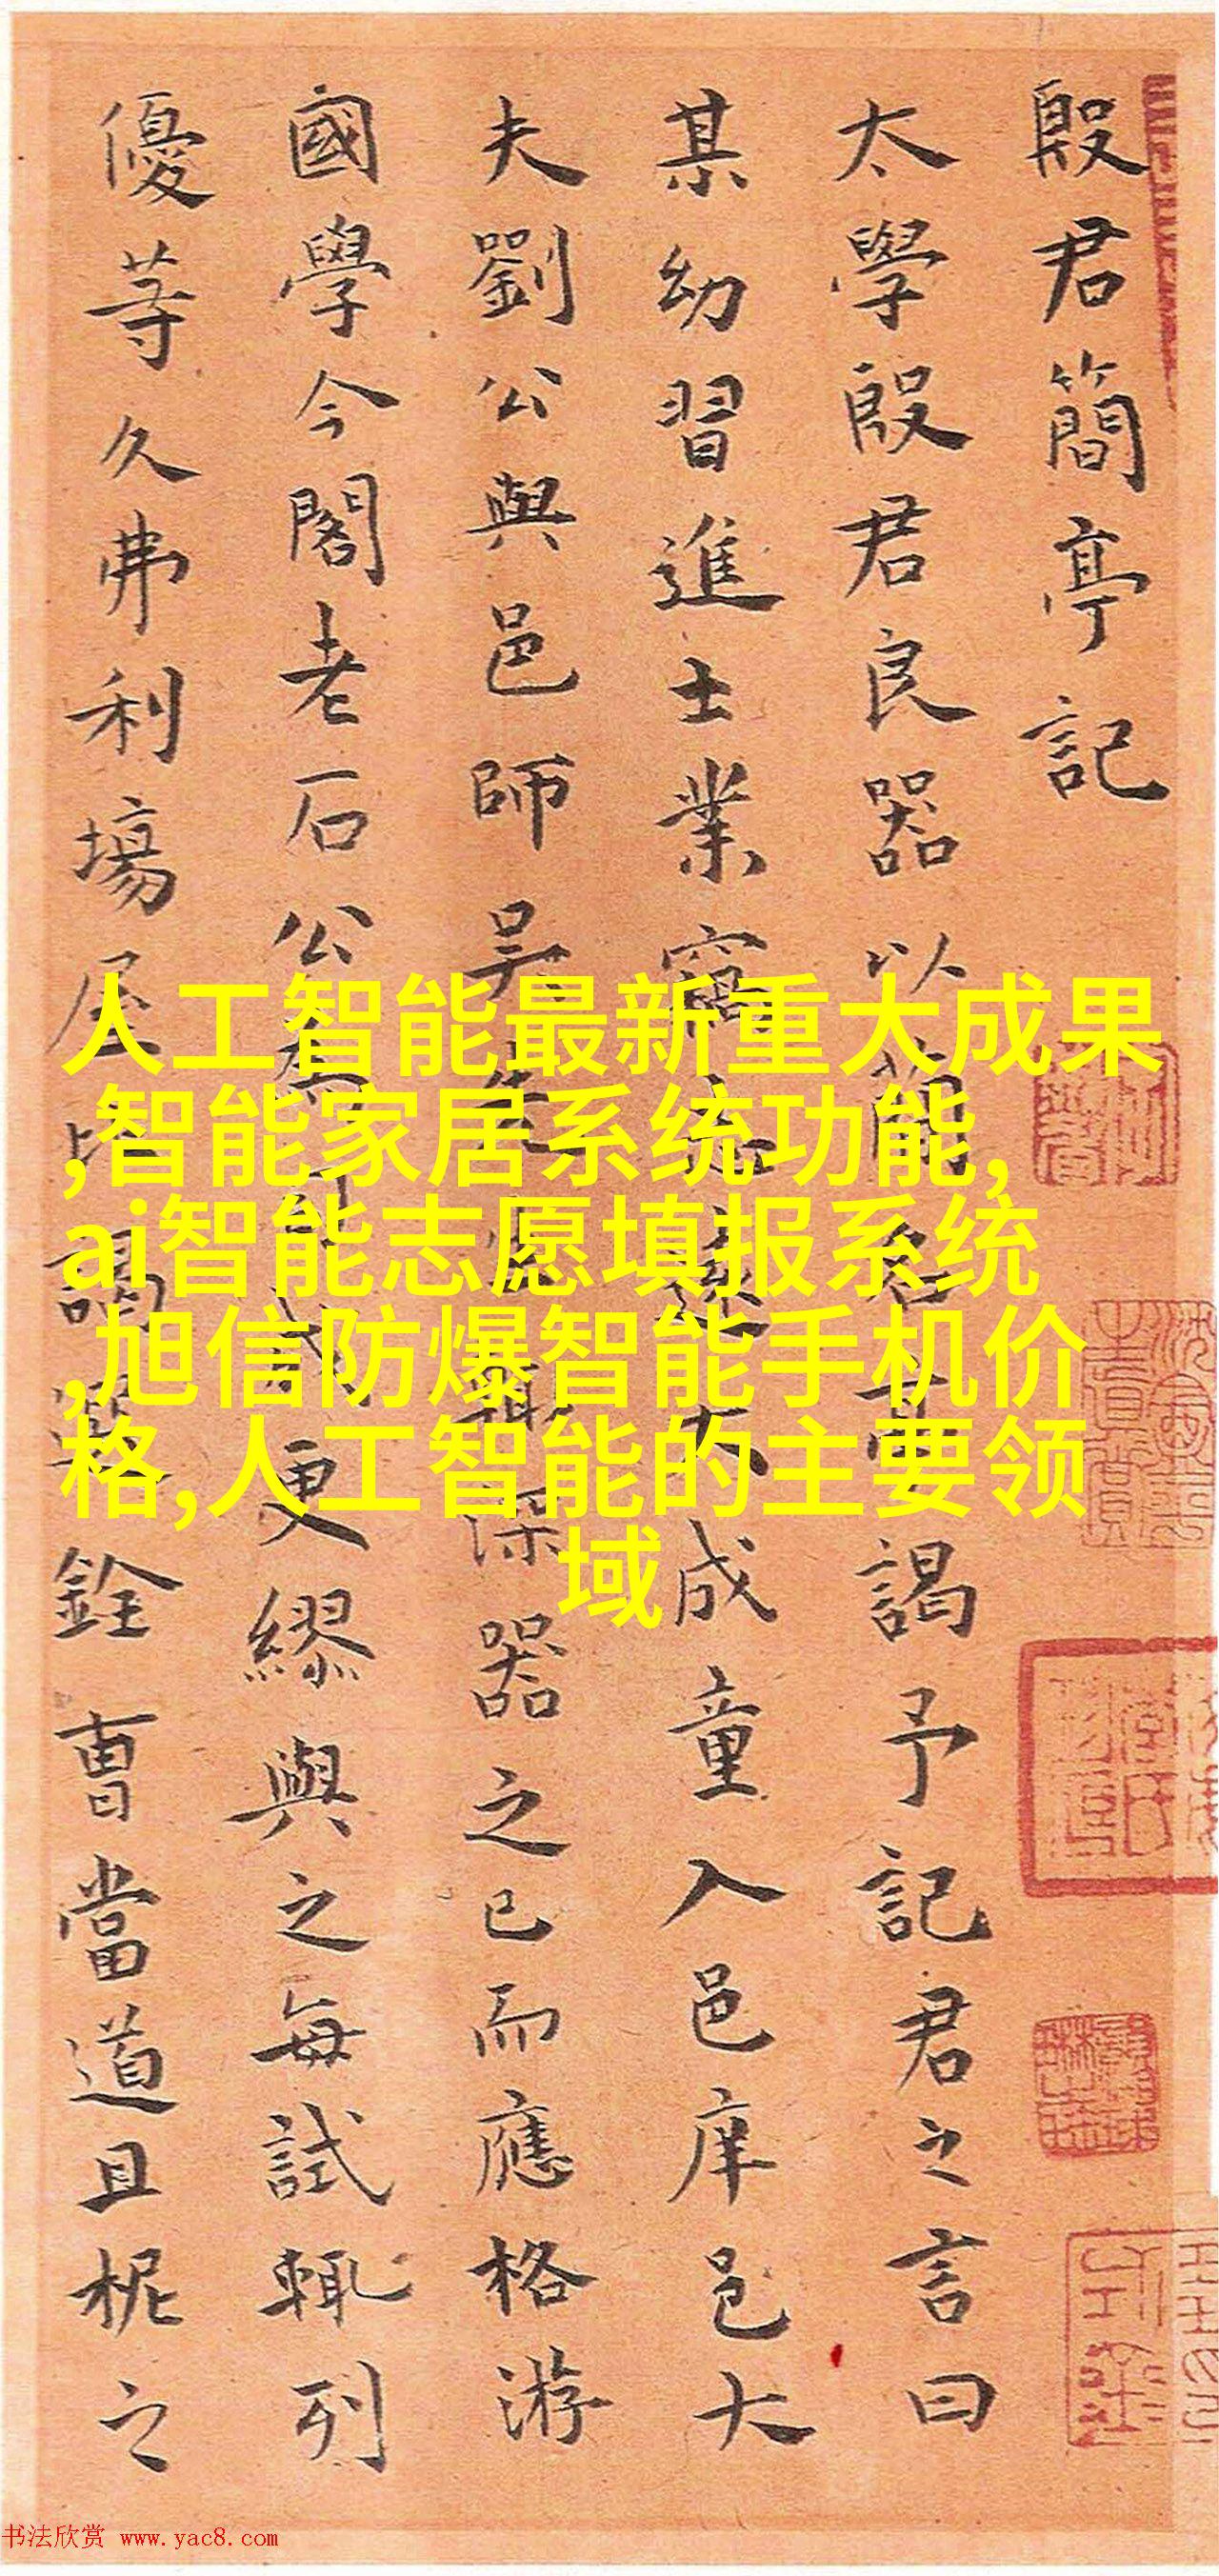 殷君簡亭記
太學殷君良器以簡名亭謁予記君之言曰
某幼習進士業志遠大成童入邑庠邑大
夫劉公與邑師吳深器之已而應格游
國學今閣老石公更繆與之每試輒列
優等久弗利場屋比謁選銓曹當道且柅之
人工智能最新重大成果
,智能家居系统功能,
ai智能志愿填报系统
,旭信防爆智能手机价
格,人工智能的主要领
域
书法欣赏 www.yac8.com